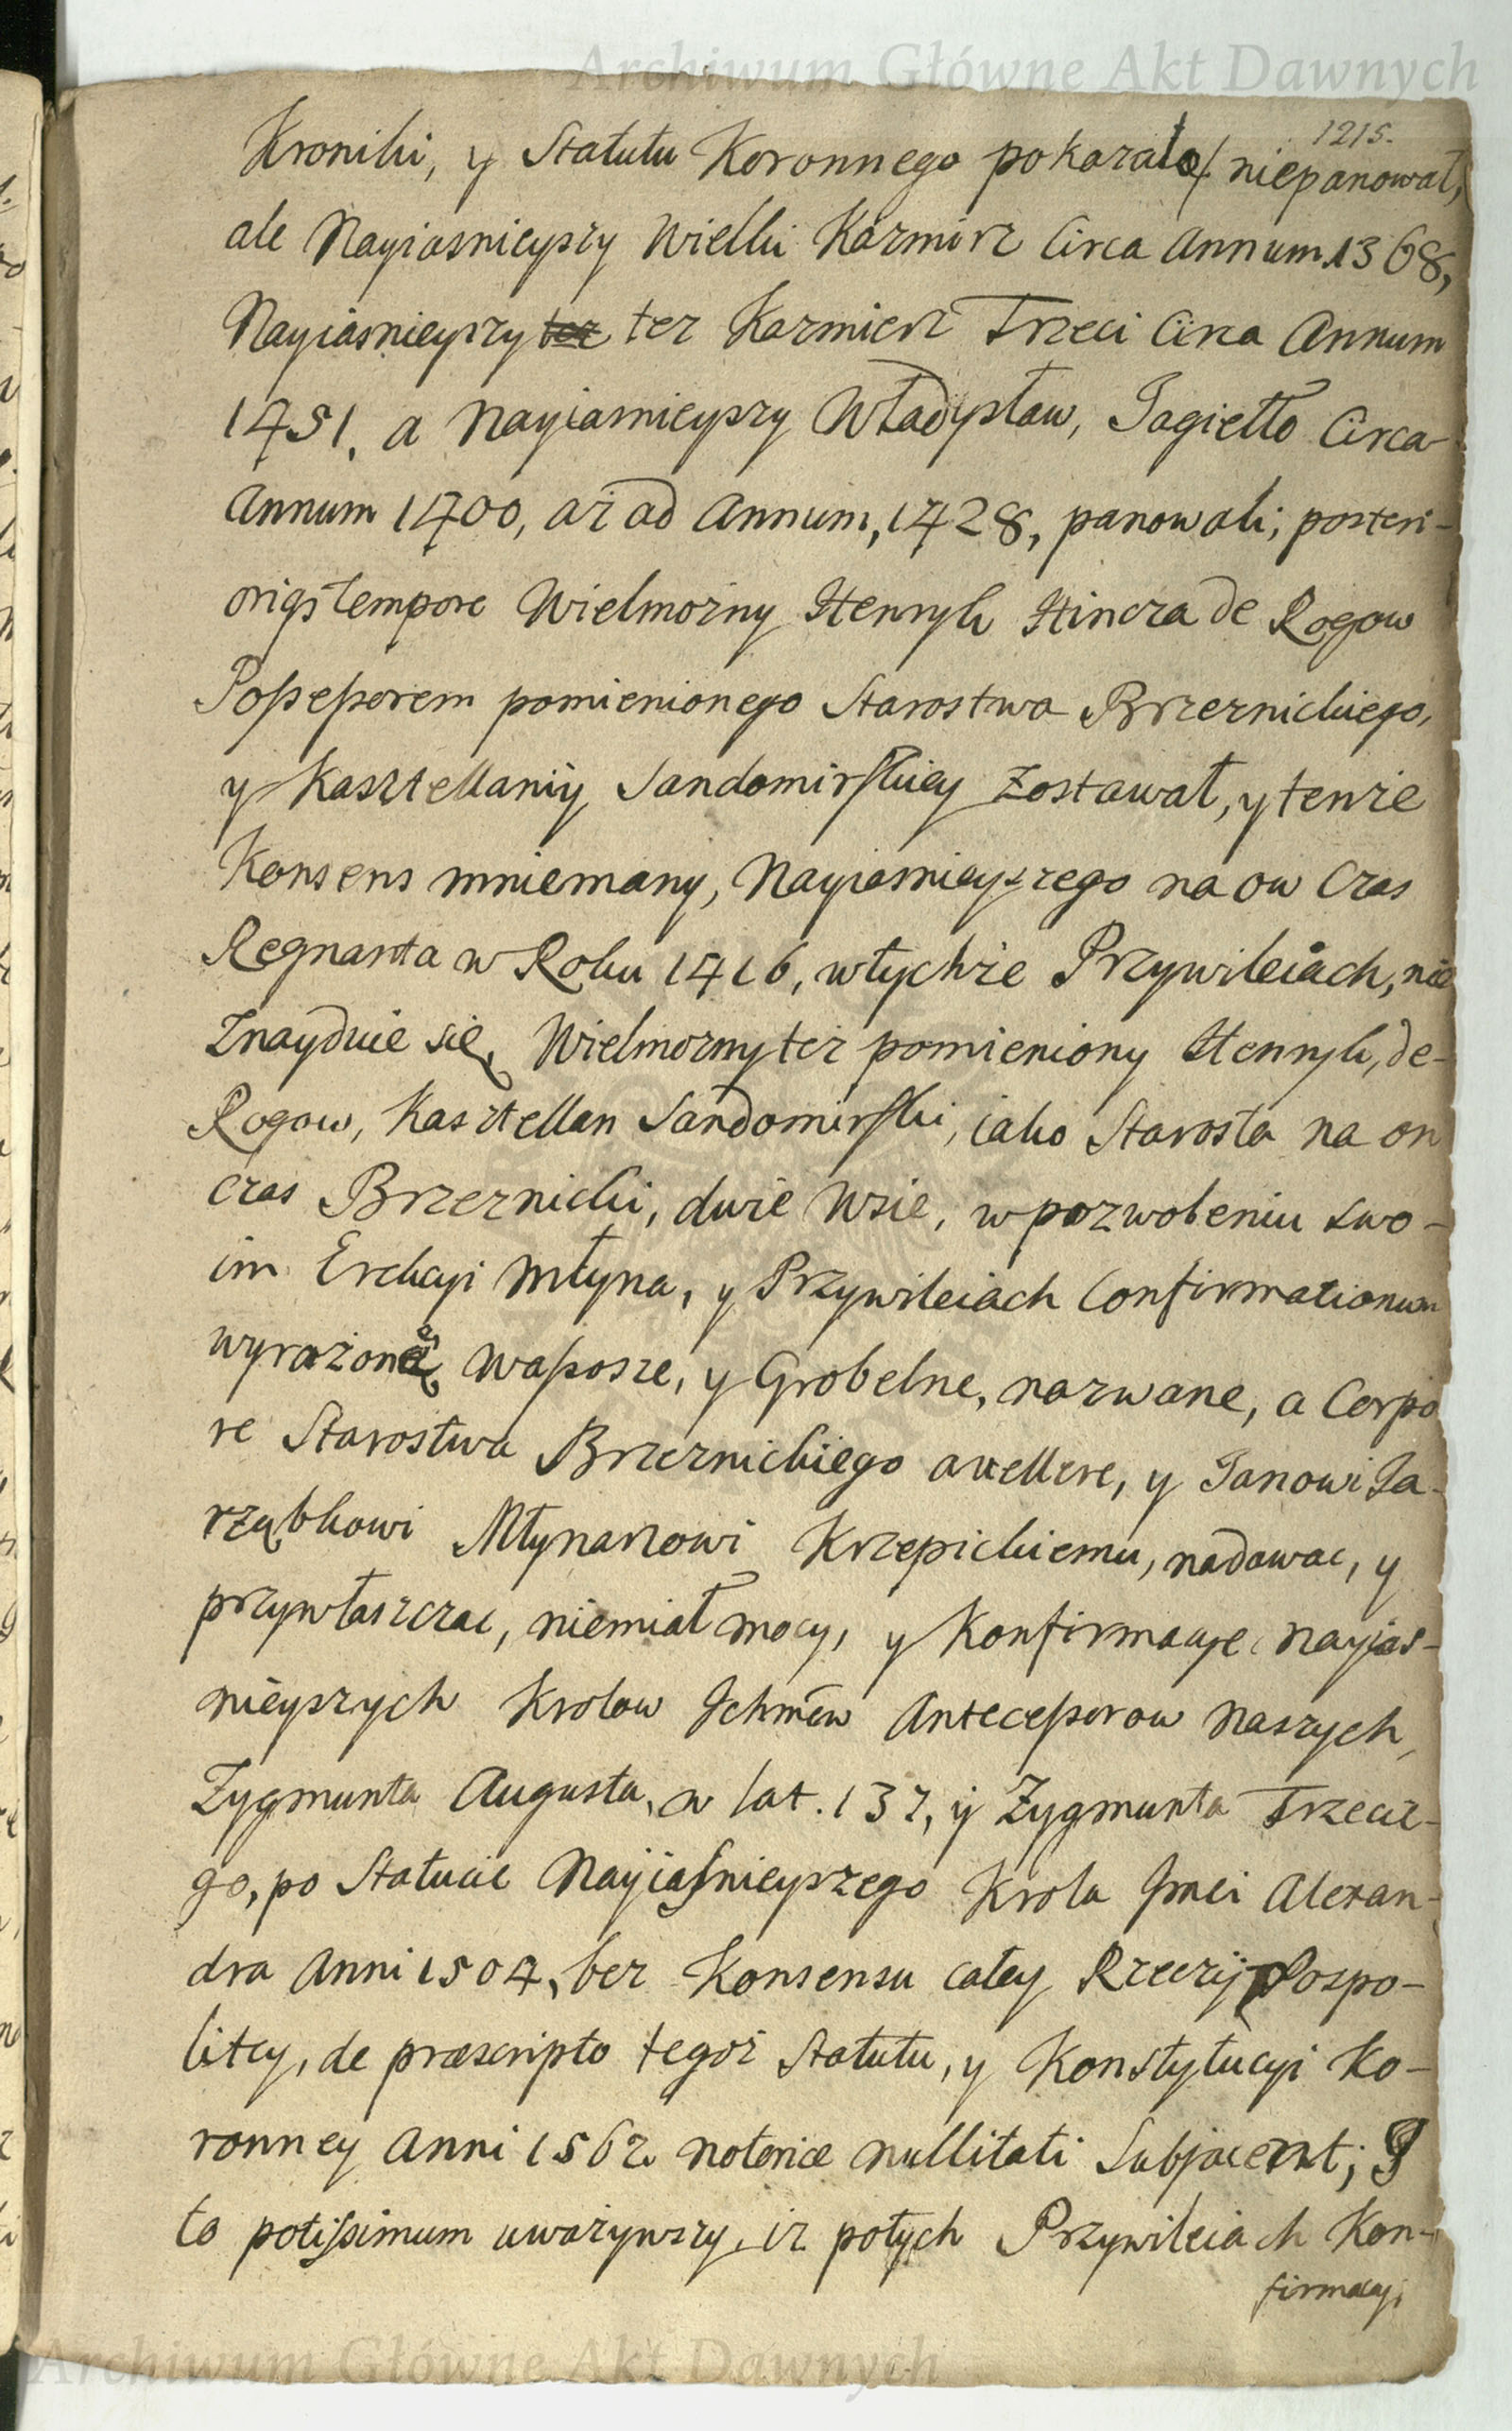 Archiwum Główne Akt Dawnych
1215.
Kroniki, y Statutu Koronnego pokazało/ niepanował,
ale Nayiasnieyszy Wielki Kazmirz Circa Annum 1368,
Nayiasnieyszy tez tez Kazmierz Trzeci Circa Annum
1451, a Nayiasnieyszy Władysław, Jagiełło Circa
Annum 1400, aż ad Annum, 1428, panowali; posteri-
oriqs tempore Wielmozny Henryk Hincza de Rogow
Possessorem pomienionego Starostwa Brzeznickiego,
y Kasztellaniy Sandomirskiey zostawał, y tenże
Konsens mniemany, Nayiasnieyszego na ow Czas
Regnanta w Roku 1416, wtychże Przywileiach, nie
Znayduie się, Wielmozny też pomieniony Henryk, de-
Rogow, Kasztellan Sandomirski, iako Starosta na on
czas Brzeznicki, dwie Wsie, w pozwoleniu swo-
im Erekcyi Młyna, y Przywileiach Confirmationum
wyrażone, Wąsosze, y Grobelne, nazwane, a Corpo
re Starostwa Brzeznickiego avellere, y Janowi Ja-
rząbkowi Młynarzowi Krzepickiemu, nadawac, y
przywłaszczac, niemiał mocy, y Konfirmacye Nayias-
nieyszych Krolow Ichmēw Antecessorow Naszych,
Zygmunta Augusta, w lat. 137, y Zygmunta Trzecie-
go, po Statucie Nayiasnieyszego Krola Jmci Alexan-
dra Anni 1504, bez Konsensu całey Rzeczyp Pospo-
litey, de præscripto tegoż Statutu, y Konstytucyi Ko-
ronney Anni 1562 notoriæ nullitati Subjacent; J
to potissimum uważywszy, iz potych Przywileiach Kon-
firmacyi
Archiwum Główne Akt Dawnych